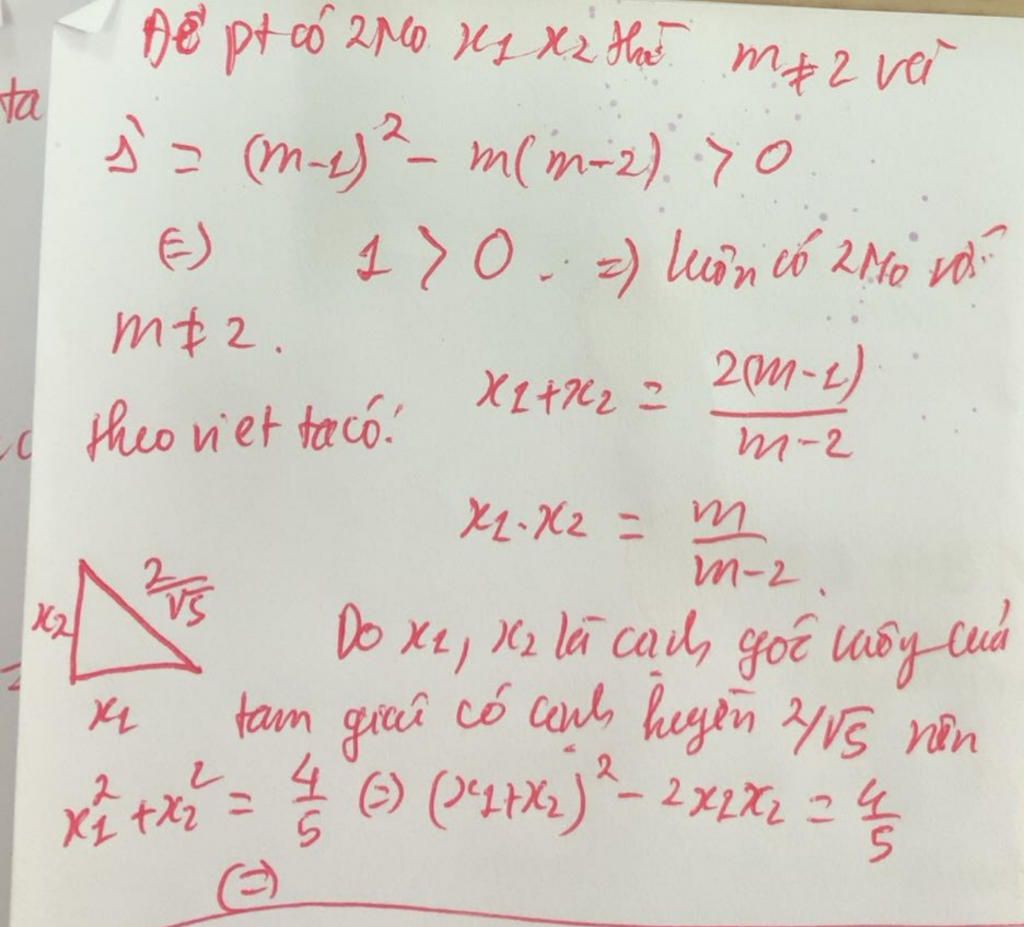 Để pt có 2No x1 x2 thì m ≠ 2 và
Δ' = (m-1)² - m(m-2) > 0
ta
(=) 1 > 0 . =) luôn có 2No với
m ≠ 2 .
theo viet ta có: x1+x2 = 2(m-1)/m-2
x1.x2 = m/m-2 .
x2 2/√5
Do x1, x2 là cạnh góc vuông của
x1 tam giác có cạnh huyền 2/√5 nên
x1² + x2² = 4/5 (=) (x1+x2)² - 2x1x2 = 4/5
(=)